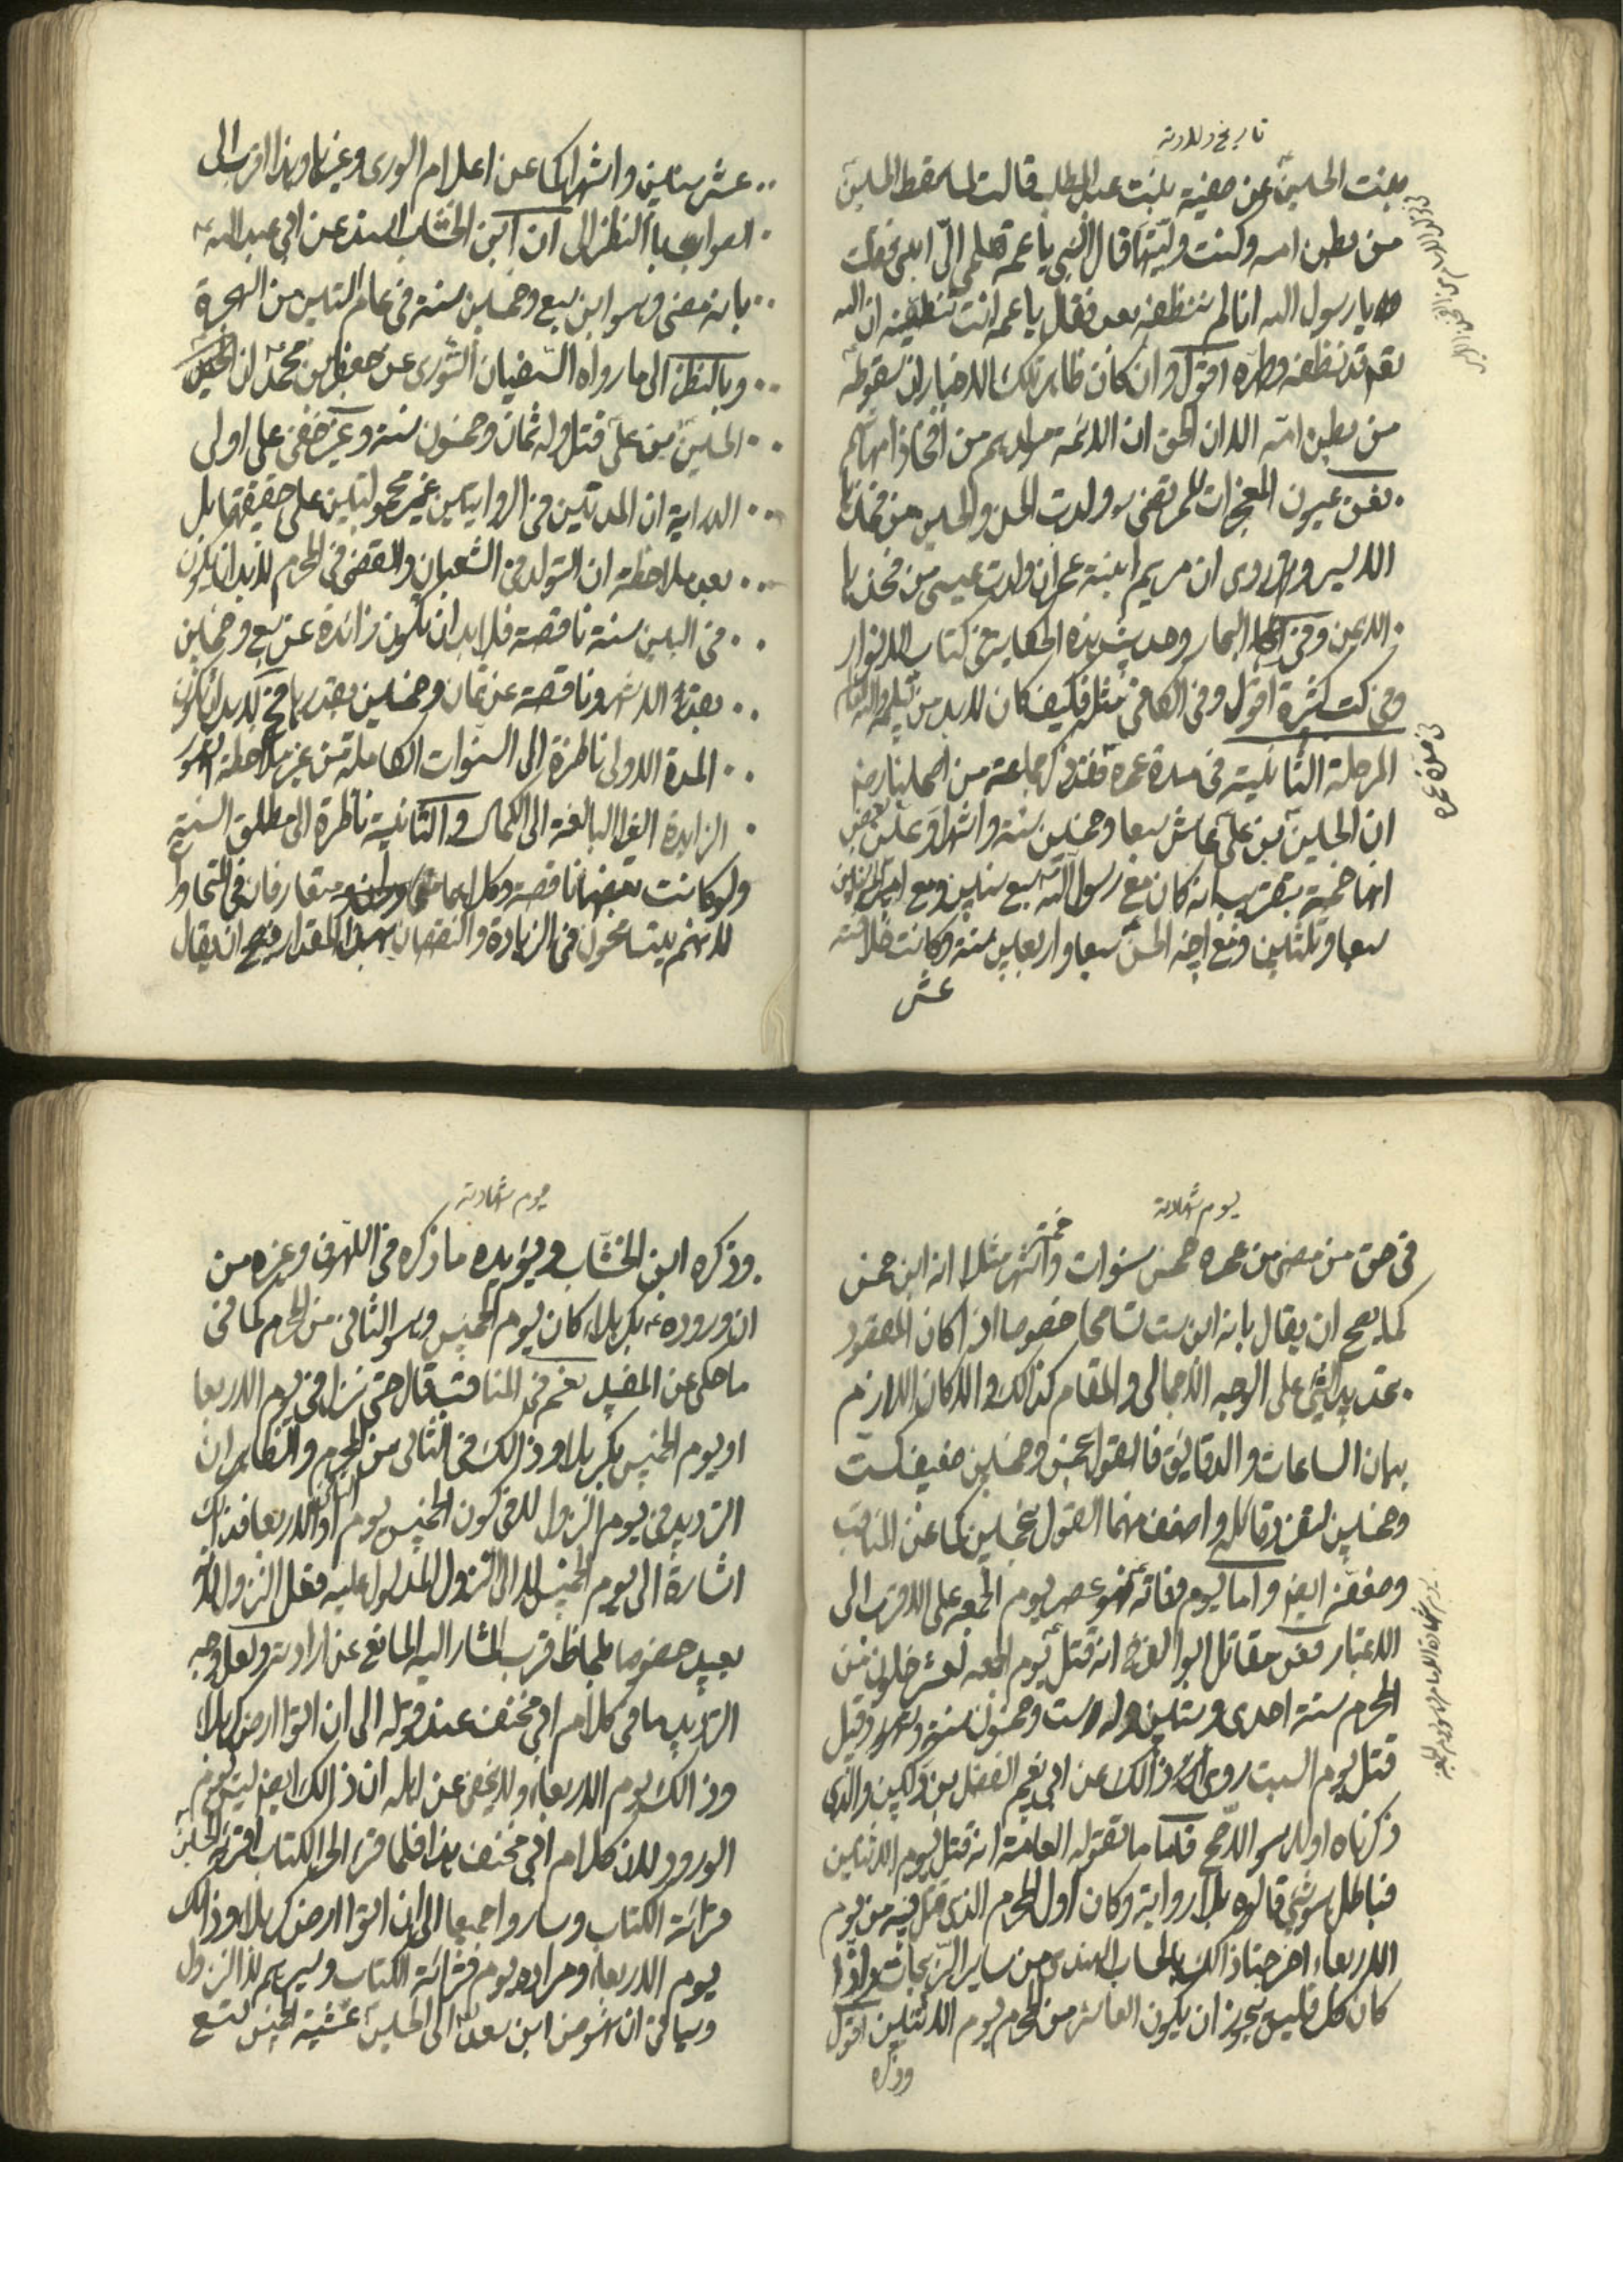 تاريخ ولادته
بنت الحسين عن صفية بنت عبد المطلب قالت لما سقط الحسين
من بطن امه وكنت وليتها قال النبي يا عمة هلمي الىّ ابني فقلت
يا رسول الله انا لم ننظفه بعد فقال يا عمه انت تنظفينه ان الله
تع قد نظفه وطهره اقول وان كان ظاهر تلك الاخبار ان سقوطه
من بطن امه الا ان الحق ان الائمة مواليدهم من افخاذ امهاتهم
ففى عيون المعجزات للمرتضى ره ولدت الحسن والحسين من فخذها
الايسر وروى ان مريم ابنة عمران ولدت عيسى من فخذها
الايمن وفى البحار وحديث هذه الحكاية فى كتاب الانوار
وفى كتب كثيرة اقول وفى الكافى مثله فكيف كان لابد من
المرحلة الثانية فى مدة عمره فقد ذكر جماعة من اصحابنا رض
ان الحسين بن على عاش سبعا وخمسين سنة واشهرا وعن بعض
انها خمسة بتقريب انه كان مع رسول الله سبع سنين ومع امير المؤمنين
سبعا وثلثين ومع اخيه الحسن سبعا واربعين سنة وكانت خلافته
عشر
فى مدة عمره
عشر سنين واشهرا كما عن اعلام الورى وغيرها وهذا اقرب الى
الصواب بالنظر الى ان ابن الخشاب اسند عن ابي عبد الله ع
بانه مضى وهو ابن سبع وخمسين سنة فى عام الستين من الهجرة
وبالنظر الى ما رواه السفيان الثورى عن جعفر بن محمد ان الحسين
الحسين بن على قتل وله ثمان وخمسون سنة وغير خفى على اولى
الدراية ان المدتين فى الروايتين غير محمولتين على حقيقتهما بل
بعد ملاحظة ان التولد فى الشعبان والقضى فى المحرم لابد ان يكون
فى البين سنة ناقصة فلابد ان تكون زائدة عن سبع وخمسين
بعدة الاشهر وناقصة عن ثمان وخمسين بقدرها فح لابد ان تكون
المدة الاولى ناظرة الى السنوات الكاملة من غير ملاحظة الشهور
الزايدة الغير البالغة الى الكمال والثانية ناظرة الى مطلق السنة
ولو كانت بعضها ناقصة وكلاهما متعارفان فى المحاورات
لانهم يتسامحون فى الزيادة والنقصان بهذا المقدار فيصح ان يقال
يوم شهادته
فى حق من مضى من عمره خمس سنوات وخمسة اشهر مثلا انه ابن خمس
كما يصح ان يقال بانه ابن ست تسامحا خصوصا اذا كان المقصود
تحديد الشئ على الوجه الاجمالى والمقام كذلك والا لكان اللازم
بيان الساعات والدقايق فالقول بخمس وخمسين ضعيف كست
وخمسين لتفرد قائله واضعف منهما القول بخمسين كما عن المناقب
وضعفه ايضا واما يوم وفاته فهو عصر يوم الجمعه على الاقرب الى
الاعتبار فعن مقاتل ابو الفرج انه قتل يوم الجمعه لعشر خلون من
المحرم سنة احدى وستين وله ست وخمسون سنة وشهور وقيل
قتل يوم السبت روى ذلك عن ابي نعيم الفضل بن دكين والذى
ذكرناه اولا هو الاصح فاما ما تقوله العامة انه قتل يوم الاثنين
فباطل هو شئ قالوه بلا رواية وكان اول المحرم الذى قتل فيه من يوم
الاربعاء اخرجنا ذلك بالحساب الهندى من ساير الزيجات واذا
كان كل فليس يجوز ان يكون العاشر من المحرم يوم الاثنين اقول
وذكره
يوم شهادته
وذكره ابن الخشاب ويؤيده ما ذكره فى اللهوف وغيره من
ان وروده بكربلاء كان يوم الخميس وهو الثانى من المحرم كما فى
ما حكى عن المفيد نعم فى المناقب قال حتى نزلوا فى يوم الاربعا
او يوم الخميس بكربلا وذلك فى الثانى من المحرم والظاهر ان
الترديد فى يوم النزول لا فى كون الخميس يوم الثانى او الاربعا فذلك
اشارة الى يوم الخميس لا الى النزول المدلول عليه بفعل النزول لانه
بعيد خصوصا بلحاظ قرب المشار اليه المانع عن ارادته ولعل وجه
الترديد ما فى كلام ابي مخنف عند قوله الى ان اتوا ارض كربلا
وذلك يوم الاربعاء ولا يخفى عن اهله ان ذلك ايضا ليس يوم
الورود لان كلام ابي مخنف هذا فلما قرا الكتاب الحسين
قرائة الكتاب وساروا جميعا الى ان اتوا ارض كربلا وذلك
يوم الاربعاء ومراده يوم قرائة الكتاب وسيرهم لا النزول
وسياتى ان نهوض ابن سعد الى الحسين عشية الخميس لتسع